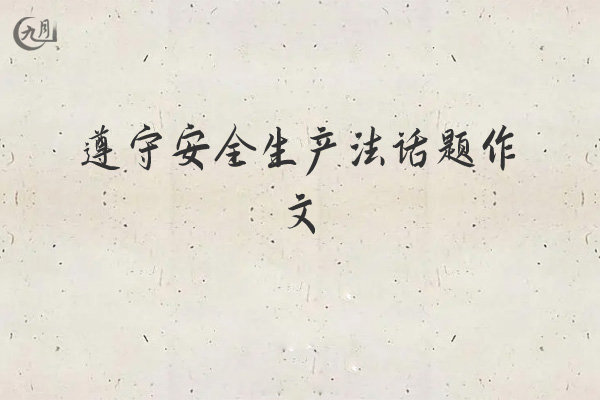 九月
遵守安全生产法话题作
文